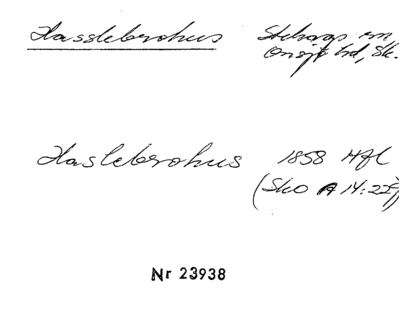 Hasslebrohus Stehags sn
Onsjö hd, Sk.
Haslebrohus 1858 Hfl
(Sko A 14:22)
Nr 23938